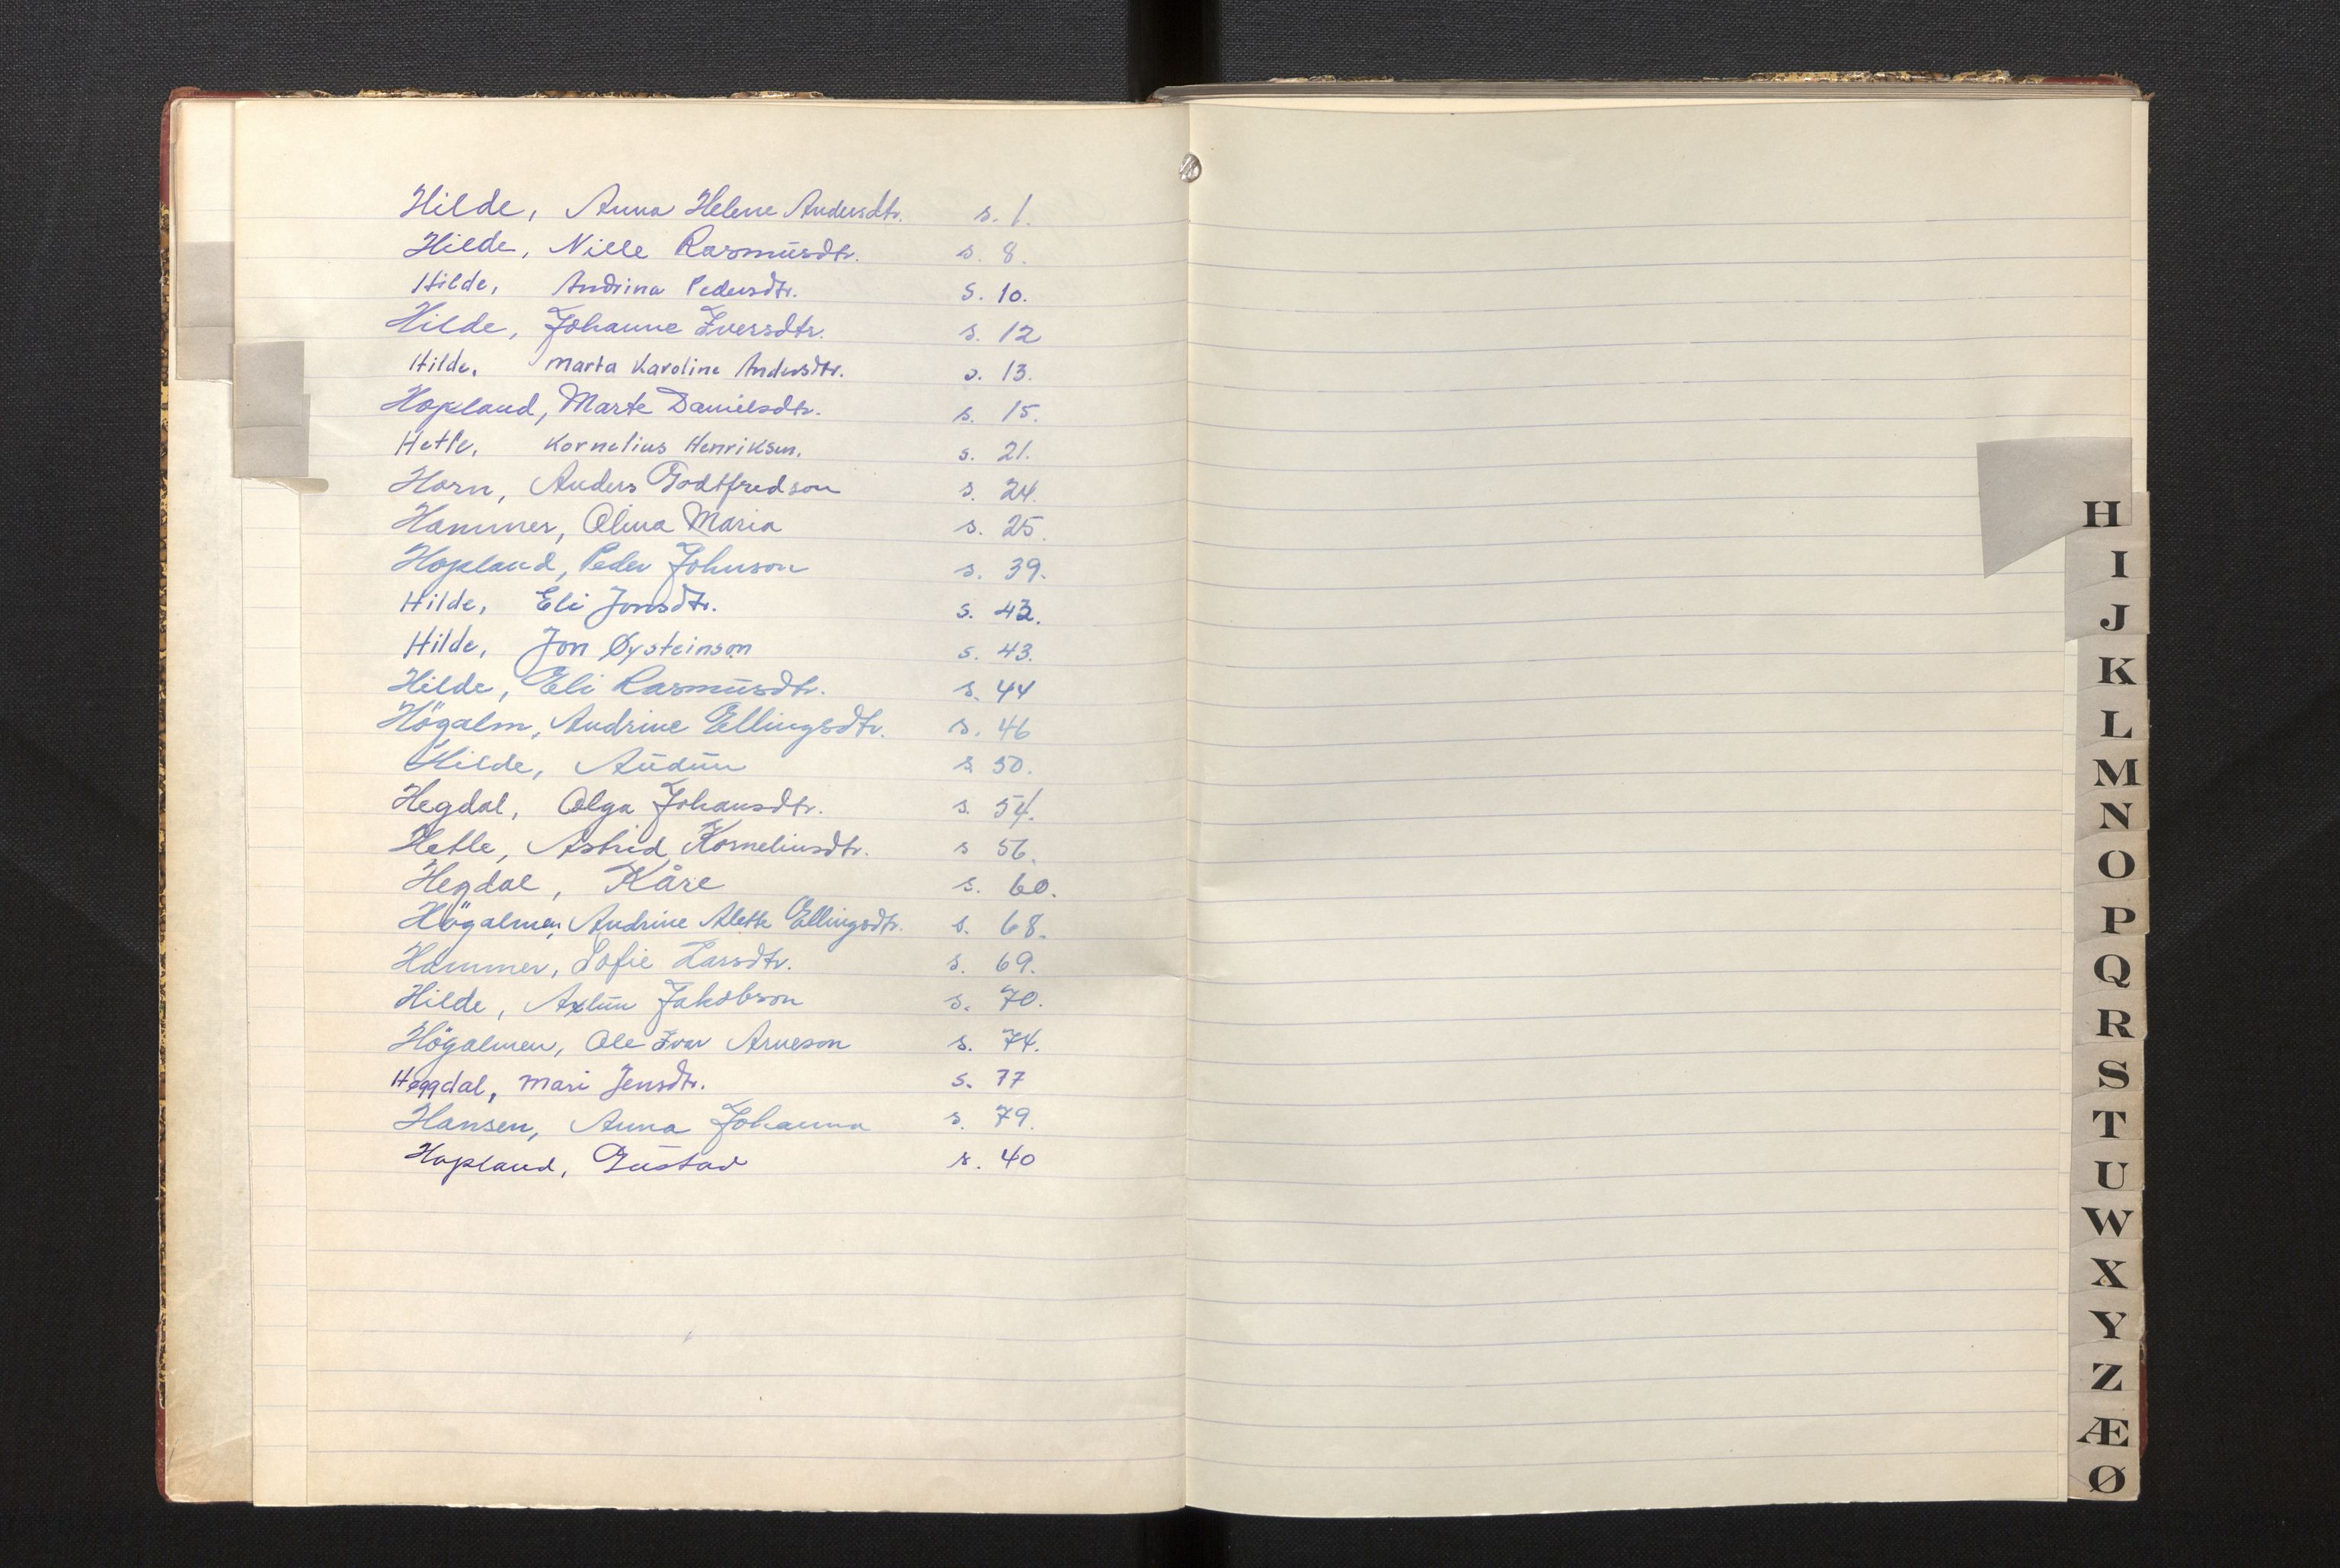 Hilde, Anna Helene Andersdtr. s. 1.
Hilde, Nille Rasmusdtr. s. 8.
Hilde, Andrina Pedersdtr. s. 10.
Hilde, Johanne Iversdtr. s. 12
Hilde, Marta Karoline Andersdtr. s. 13.
Hopland, Marte Danielsdtr. s. 15.
Hetle, Kornelius Henriksen. s. 21.
Horn, Anders Godtfredson s. 24.
Hammer, Olina Maria s. 25.
Hopland, Peder Johnson s. 39.
Hilde, Eli Jonsdtr. s. 43.
Hilde, Jon Øysteinson s. 43.
Hilde, Eli Rasmusdtr. s. 44
Högalm, Andrine Ellingsdtr. s. 46
Hilde, Audun s 50.
Hegdal, Olga Johansdtr. s. 54.
Hetle, Astrid Korneliusdtr. s 56.
Hegdal, Kåre s. 60.
Högalmen, Andrine Alette Ellingsdtr. s. 68.
Hammer, Sofie Larsdtr. s. 69.
Hilde, Jakobson s. 70.
Högalmen, Ole Ivar Arneson s. 74.
Heggdal, Mari Jensdtr. s. 77
Hansen, Anna Johanna s. 79.
Hopland, Gustav s. 40
H
I
J
K
L
M
N
O
P
Q
R
S
T
U
W
X
Y
Z
Æ
Ø